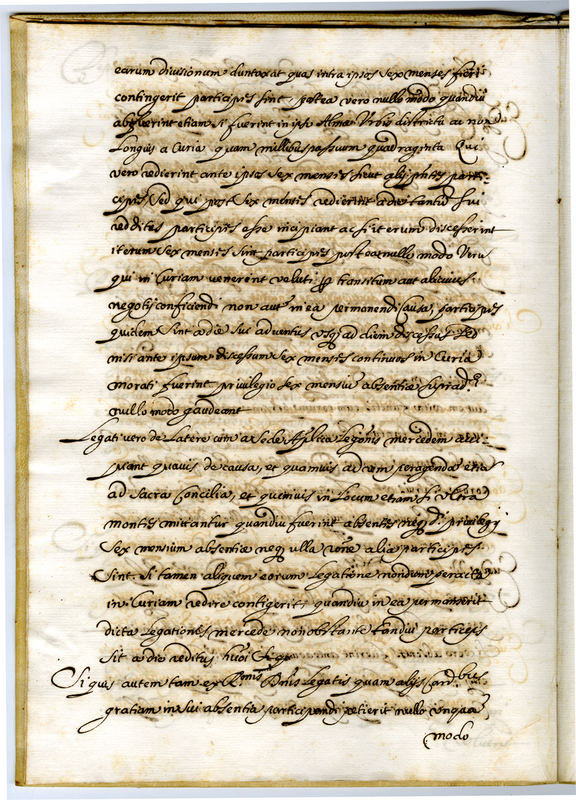 earum divisionum duntaxat quas intra ipsos sex menses fieri
contingerit participes sint, postea vero nullo modo quandiu
abfuerint etiam si fuerint in ipso Almæ Urbis districtu aut non
Longius a Curia quam millibus passuum quadraginta Qui
vero redierint ante ipsos sex menses sicut alij p̃ntes parti-
cipes, sed qui post sex menses redierint a die tantũ sui
redditus participes esse incipiant ac si iterum discesserint
iterum sex menses sint participes postea nullo modo Veru
qui in Curiam venerint veluti ꝑ transitum aut alicuius
negotij conficiendi non autẽ in ea permanendi causa, participes
quidem sint a die sui adventus usq̃ ad diem discessus sed
nisi ante ipsum discessum sex menses continuos in Curia
morati fuerint privilegio sex mensiũ absentiæ suprad.ᵒ
nullo modo gaudeant
Legati vero de Latere cum a sede Ap̃lica Legõnis mercedem acci-
piant quavis de causa, et quamvis ad rem peragenda etiã
ad sacra Concilia, et quemvis in Locum etiam si ultra
montes mittantur quandiu fuerint absentes neq̃ d.ⁱ privilegij
sex mensium absentiæ neq̃ ulla rõne alia participes
sint. Si tamen aliquem eorum Legatione nondum peracta
in Curiam redire contigerit, quandiu in ea permanserit
dicta Legationis mercede non obstante tandiu particeps
sit a die reditus
Si quis autem tam ex R.ᵐⁱˢ D̃nis Legatis quam alijs Card.ᵇᵘˢ
gratiam in sui absentia participandi petierit nullo unquã
modo